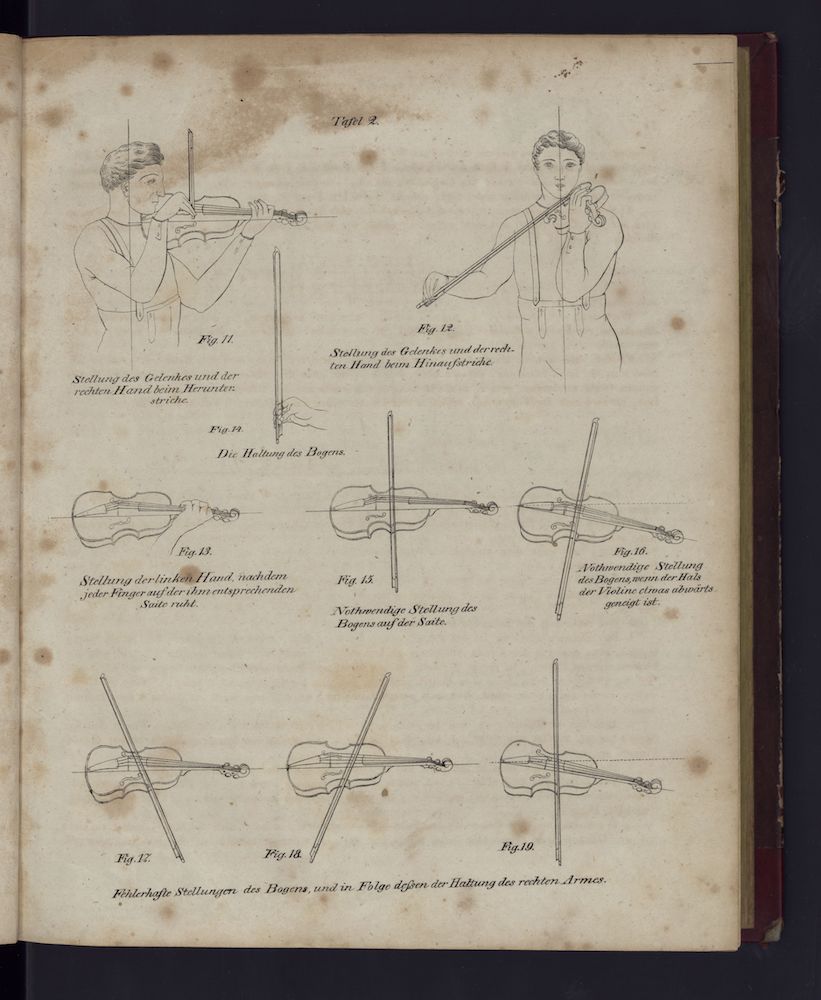 Tafel 2.
Fig. 11.
Stellung des Gelenkes und der
rechten Hand beim Herunter-
striche.
Fig. 12.
Stellung des Gelenkes und der rech-
ten Hand beim Hinaufstriche.
Fig. 14.
Die Haltung des Bogens.
Fig. 13.
Stellung der linken Hand, nachdem
jeder Finger auf der ihm entsprechenden
Saite ruht.
Fig. 15.
Nothwendige Stellung des
Bogens auf der Saite.
Fig. 16.
Nothwendige Stellung
des Bogens, wenn der Hals
der Violine etwas abwärts
geneigt ist.
Fig. 17.
Fig. 18.
Fig. 19.
Fehlerhafte Stellungen des Bogens, und in Folge deßen der Haltung des rechten Armes.